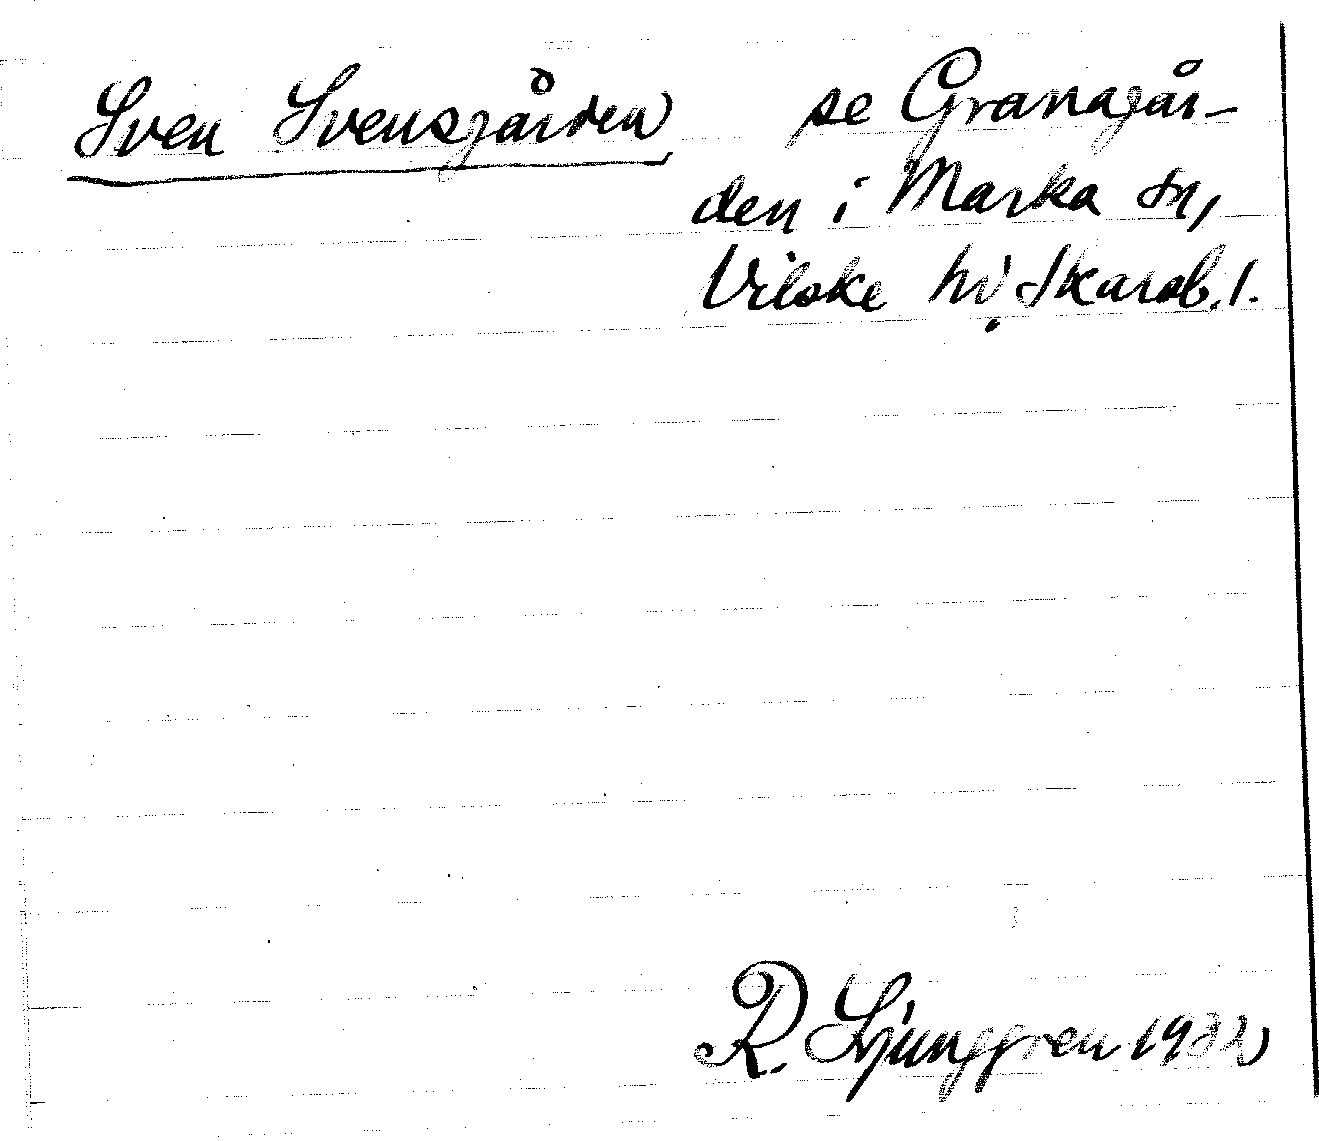 Sven Svensgården se Granagår-
den i Marka sn,
Vilske hd Skarab. l.
R. Ljunggren 1932